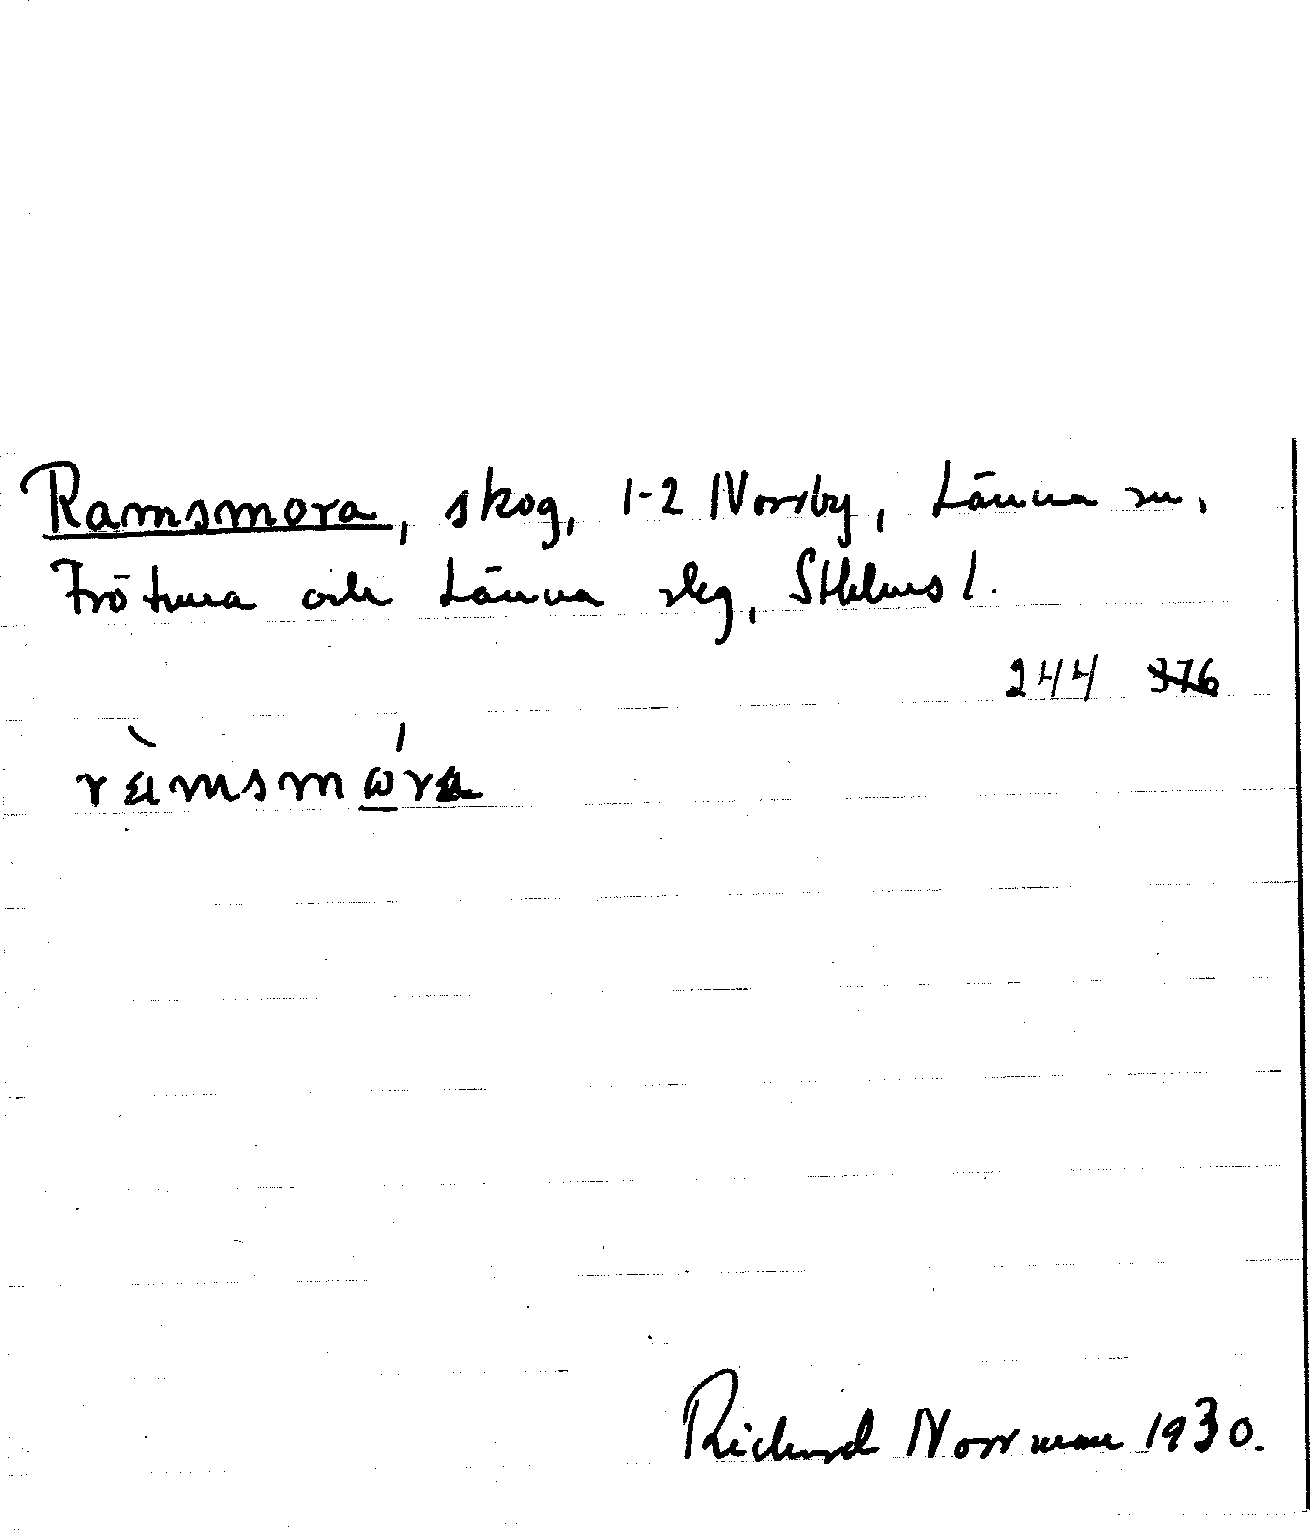 Ramsmora, skog, 1-2 Norrby, Länna sn.
Frötuna och Länna skg, Sthlms l.
244 376
ràmsmώra
Richard Norrman 1930.